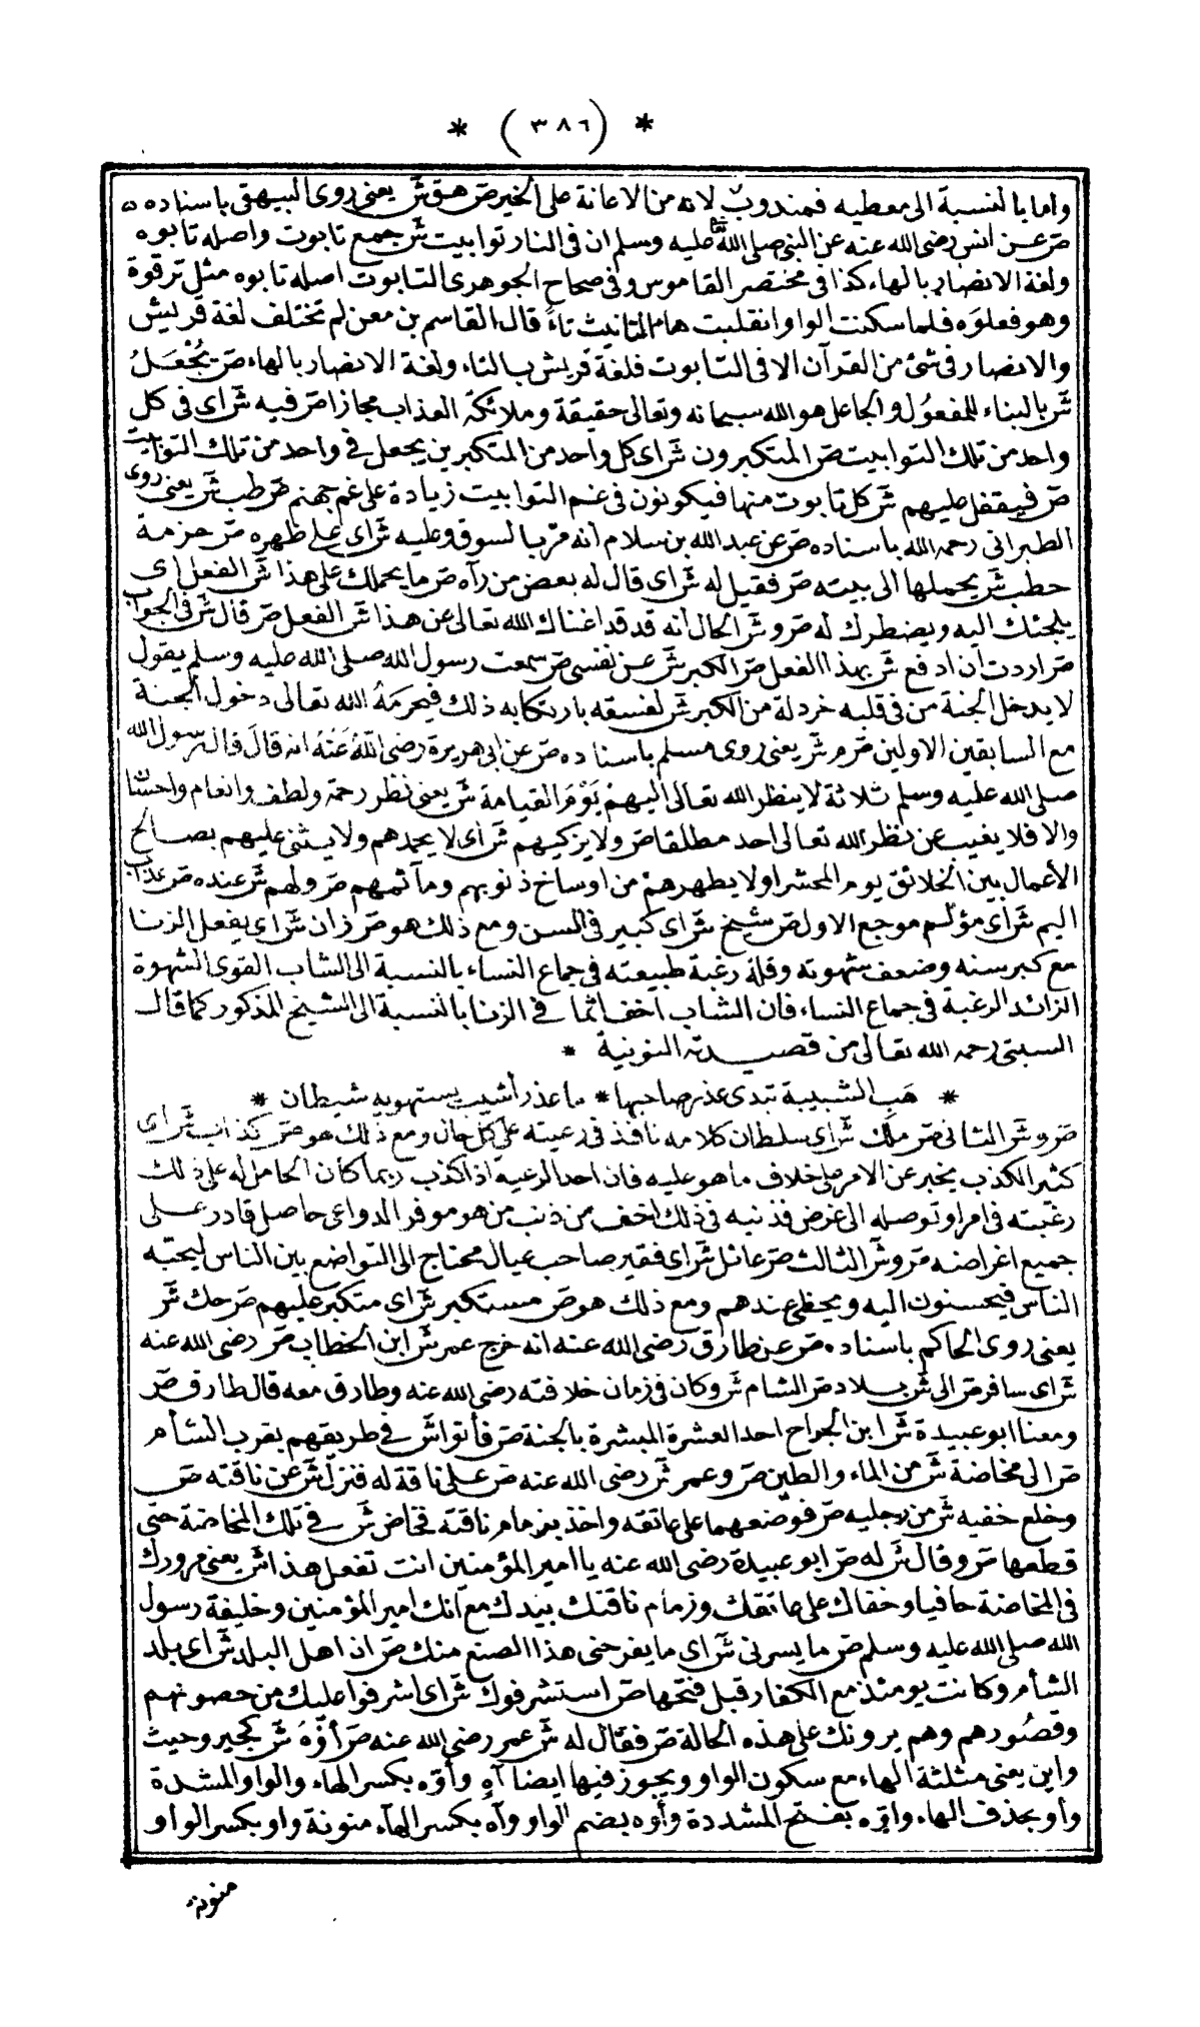 * (٣٨٦) *
واما بالنسبة الى معطيه فمندوب لانه من الاعانة على الخير ص هق ش يعنى روى البيهقى باسناده
ص عن انس رضى الله عنه عن النبى صلى الله عليه وسلم ان فى النار توابيت ش جمع تابوت واصله تابوه
ولغة الانصار بالهاء كذا فى مختصر القاموس وفى صحاح الجوهرى التابوت اصله تابوه مثل ترقوة
وهو فعلوه فلما سكنت الواو انقلبت هاء التانيث تاءً قال القاسم بن معن لم تختلف لغة قريش
والانصار فى شئ من القرآن الا فى التابوت فلغة قريش بالتاء ولغة الانصار بالهاء ص يُجْعَلُ
ش بالبناء للمفعول والجاعل هو الله سبحانه وتعالى حقيقة وملائكة العذاب مجازا ص فيه ش اى فى كل
واحد من تلك التوابيت ص المتكبرون ش اى كل واحد من المتكبرين يجعل فى واحد من تلك التوابيت
ص فيقفل عليهم ش كل تابوت منها فيكونون فى غم التوابيت زيادة على غم جهنم ص طب ش يعنى روى
الطبرانى رحمه الله باسناده ص عن عبد الله بن سلام انه مرّ بالسوق وعليه ش اى على ظهره ص حزمة
حطب ش يحملها الى بيته ص فقيل له ش اى قال له بعض من رآه ص ما يحملك على هذا ش الفعل اى
يلجئك اليه ويضطرك له ص و ش الحال انه قد قد اغناك الله تعالى عن هذا ش الفعل ص قال ش فى الجواب
ص اردت ان ادفع ش بهذا الفعل ص الكبر ش عن نفسى ص سمعت رسول الله صلى الله عليه وسلم يقول
لا يدخل الجنة من فى قلبه خردلة من الكبر ش لفسقه بارتكابه ذلك فيحرمهُ الله تعالى دخول الجنة
مع السابقين الاولين ص م ش يعنى روى مسلم باسناده ص عن ابى هريرة رضى اللهُ عَنْهُ انه قال قال رسول الله
صلى الله عليه وسلم ثلاثة لا ينظر الله تعالى اليهم يَوْمَ القيامة ش يعنى نظر رحمة ولطف وانعام واحسان
والا فلا يغيب عن نظر الله تعالى احد مطلقا ص ولا يزكيهم ش اى لا يحمدهم ولا يثنى عليهم بصالح
الأعمال بين الخلائق يوم المحشر او لا يطهرهم من اوساخ ذنوبهم ومآثمهم ص ولهم ش عنده ص عذاب
اليم ش اى مؤلم موجع الاول ص شيخ ش اى كبير فى السن ومع ذلك هو ص زان ش اى يفعل الزنا
مع كبر سنه وضعف شهوته وقلة رغبة طبيعته فى جماع النساء بالنسبة الى الشاب القوى الشهوة
الزائد الرغبة فى جماع النساء فان الشاب اخف اثما فى الزنا بالنسبة الى الشيخ المذكور كما قال
البستى رحمه الله تعالى من قصيدته النونية *
* هَبِ الشبيبة تبدى عذر صاحبها * ما عذر أشيب يستهويه شيطان *
ص و ش الثانى ص ملك ش اى سلطان كلامه نافذ فى رعيته على كل حال ومع ذلك هو ص كذاب ش اى
كثير الكذب يخبر عن الامر على خلاف ما هو عليه فان احد الرعية اذا كذب ربما كان الحامل له على ذلك
رغبته فى امر او توصله الى غرض فذنبه فى ذلك اخف من ذنب من هو موفر الدواعى حاصل قادر على
جميع اغراضه ص و ش الثالث ص عائل ش اى فقير صاحب عيال محتاج الى التواضع بين الناس ليحبه
الناس فيحسنون اليه ويحظى عندهم ومع ذلك هو ص مستكبر ش اى متكبر عليهم ص حك ش
يعنى روى الحاكم باسناده ص عن طارق رضى الله عنه انه خرج عمر ش ابن الخطاب ص رضى الله عنه
ش اى سافر ص الى ش بلاد ص الشام ش وكان فى زمان خلافته رضى الله عنه وطارق معه قال طارق ص
ومعنا ابو عبيدة ش ابن الجراح احد العشرة المبشرة بالجنة ص فأتوا ش فى طريقهم بقرب الشأم
ص الى مخاضة ش من الماء والطين ص وعمر ش رضى الله عنه ص على ناقة له فنزل ش عن ناقته ص
وخلع خفيه ش من رجليه ص فوضعهما على عاتقه واخذ بزمام ناقته فخاض ش فى تلك المخاضة حتى
قطعها ص وقال ش له ص ابو عبيدة رضى الله عنه يا امير المؤمنين انت تفعل هذا ش يعنى مرورك
فى المخاضة حافيا وخفاك على عاتقك وزمام ناقتك بيدك مع انك امير المؤمنين وخليفة رسول
الله صلى الله عليه وسلم ص ما يسرنى ش اى ما يفرحنى هذا الصنع منك ص ان اهل البلد ش اى بلد
الشأم وكانت يومئذ مع الكفار قبل فتحها ص استشرفوك ش اى اشرفوا عليك من حصونهم
وقصُورهم وهم يرونك على هذه الحالة ص فقال له ش عمر رضى الله عنه ص أوَّهْ ش كجير وحيث
واين يعنى مثلثة الهاء مع سكون الواو ويجوز فيها ايضا آهِ وأوّه بكسر الهاء والواو المشددة
وأو بحذف الهاء واوّه بفتح المشددة وأوه بضم الواو وآهٍ بكسر الهاء منونة واو بكسر الواو
منونة